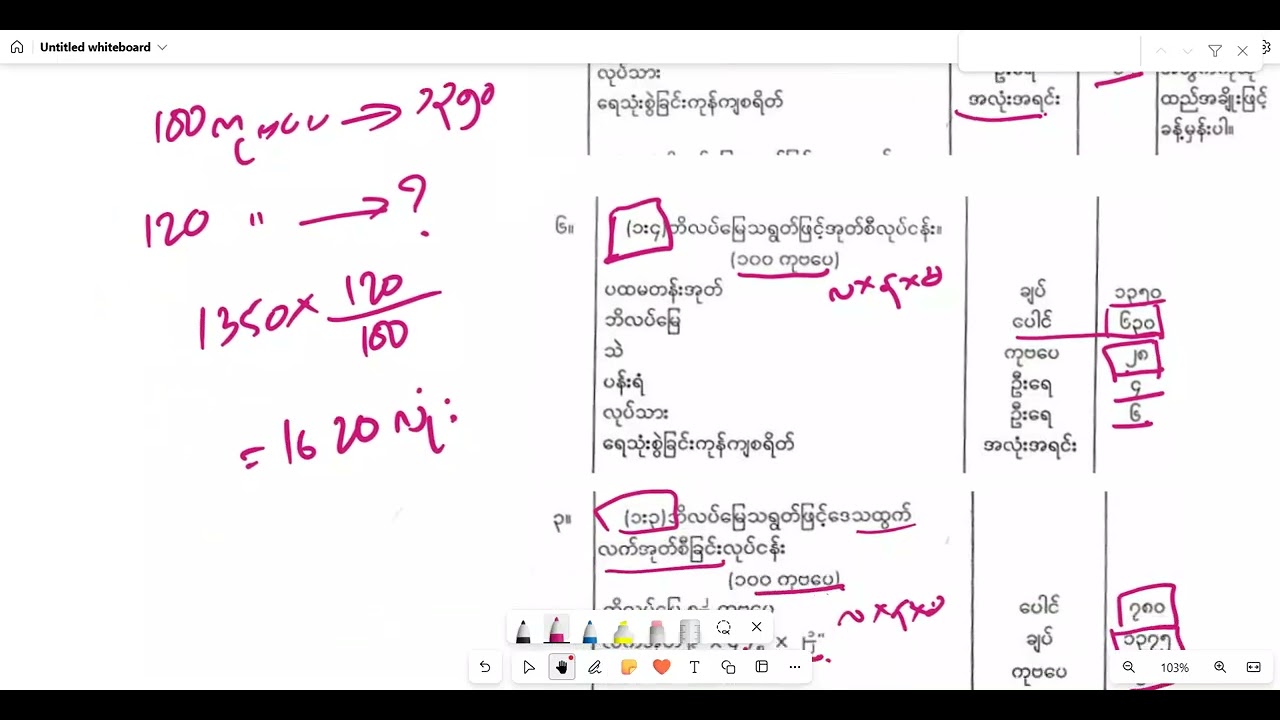 Untitled whiteboard
လုပ်သား
ရေသုံးစွဲခြင်းကုန်ကျစရိတ်
အလုံးအရင်း
ထည်အချိုးဖြင့်
ခန့်မှန်းပါ။
120 " → ?
1350 × 120/100
= 1620 လုံး
၆။ (၁း၄)ဘိလပ်မြေသရွတ်ဖြင့်အုတ်စီလုပ်ငန်း။
(၁၀၀ ကုဗပေ)
လ×န×မ
ပထမတန်းအုတ် ချပ် ၁၃၅၀
ဘိလပ်မြေ ပေါင် ၆၃၀
သဲ ကုဗပေ ၂၈
ပန်းရံ ဦးရေ ၄
လုပ်သား ဦးရေ ၆
ရေသုံးစွဲခြင်းကုန်ကျစရိတ် အလုံးအရင်း
၃။ (၁း၃)ဘိလပ်မြေသရွတ်ဖြင့်ဒေသထွက်
လက်အုတ်စီခြင်းလုပ်ငန်း
(၁၀၀ ကုဗပေ)
လ×န×မ
ပေါင် ၇၈၀
ချပ် ၁၃၇၅
ကုဗပေ
103%